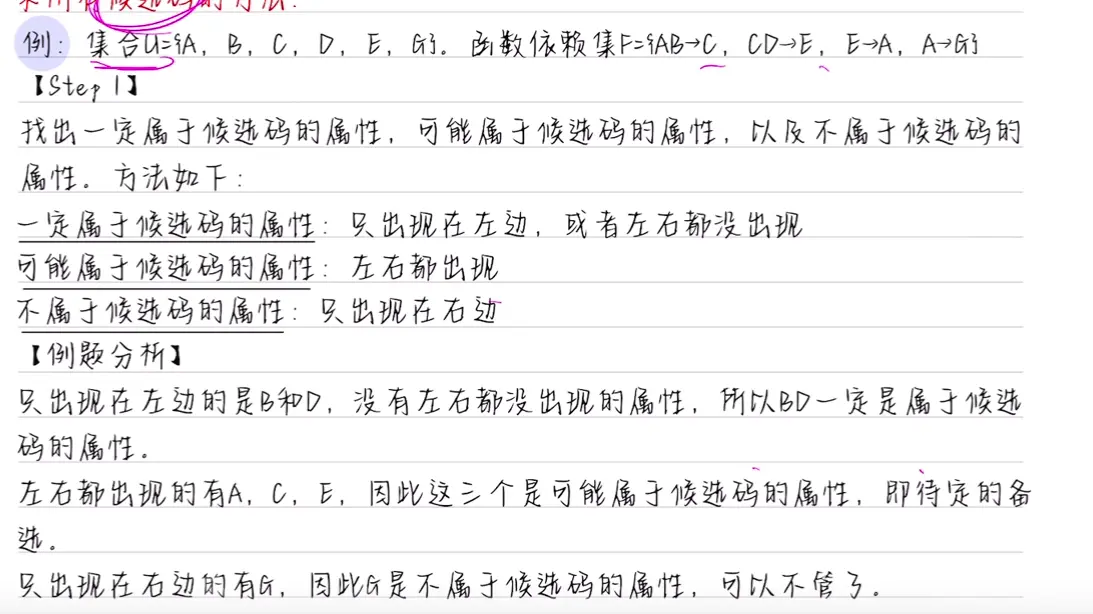 求所有候选码的方法：
例：集合U={A, B, C, D, E, G}. 函数依赖集F={AB→C, CD→E, E→A, A→G}
【Step 1】
找出一定属于候选码的属性, 可能属于候选码的属性, 以及不属于候选码的
属性。方法如下：
一定属于候选码的属性：只出现在左边, 或者左右都没出现
可能属于候选码的属性：左右都出现
不属于候选码的属性：只出现在右边
【例题分析】
只出现在左边的是B和D, 没有左右都没出现的属性, 所以BD一定是属于候选
码的属性。
左右都出现的有A, C, E, 因此这三个是可能属于候选码的属性, 即待定的备
选。
只出现在右边的有G, 因此G是不属于候选码的属性, 可以不管了。